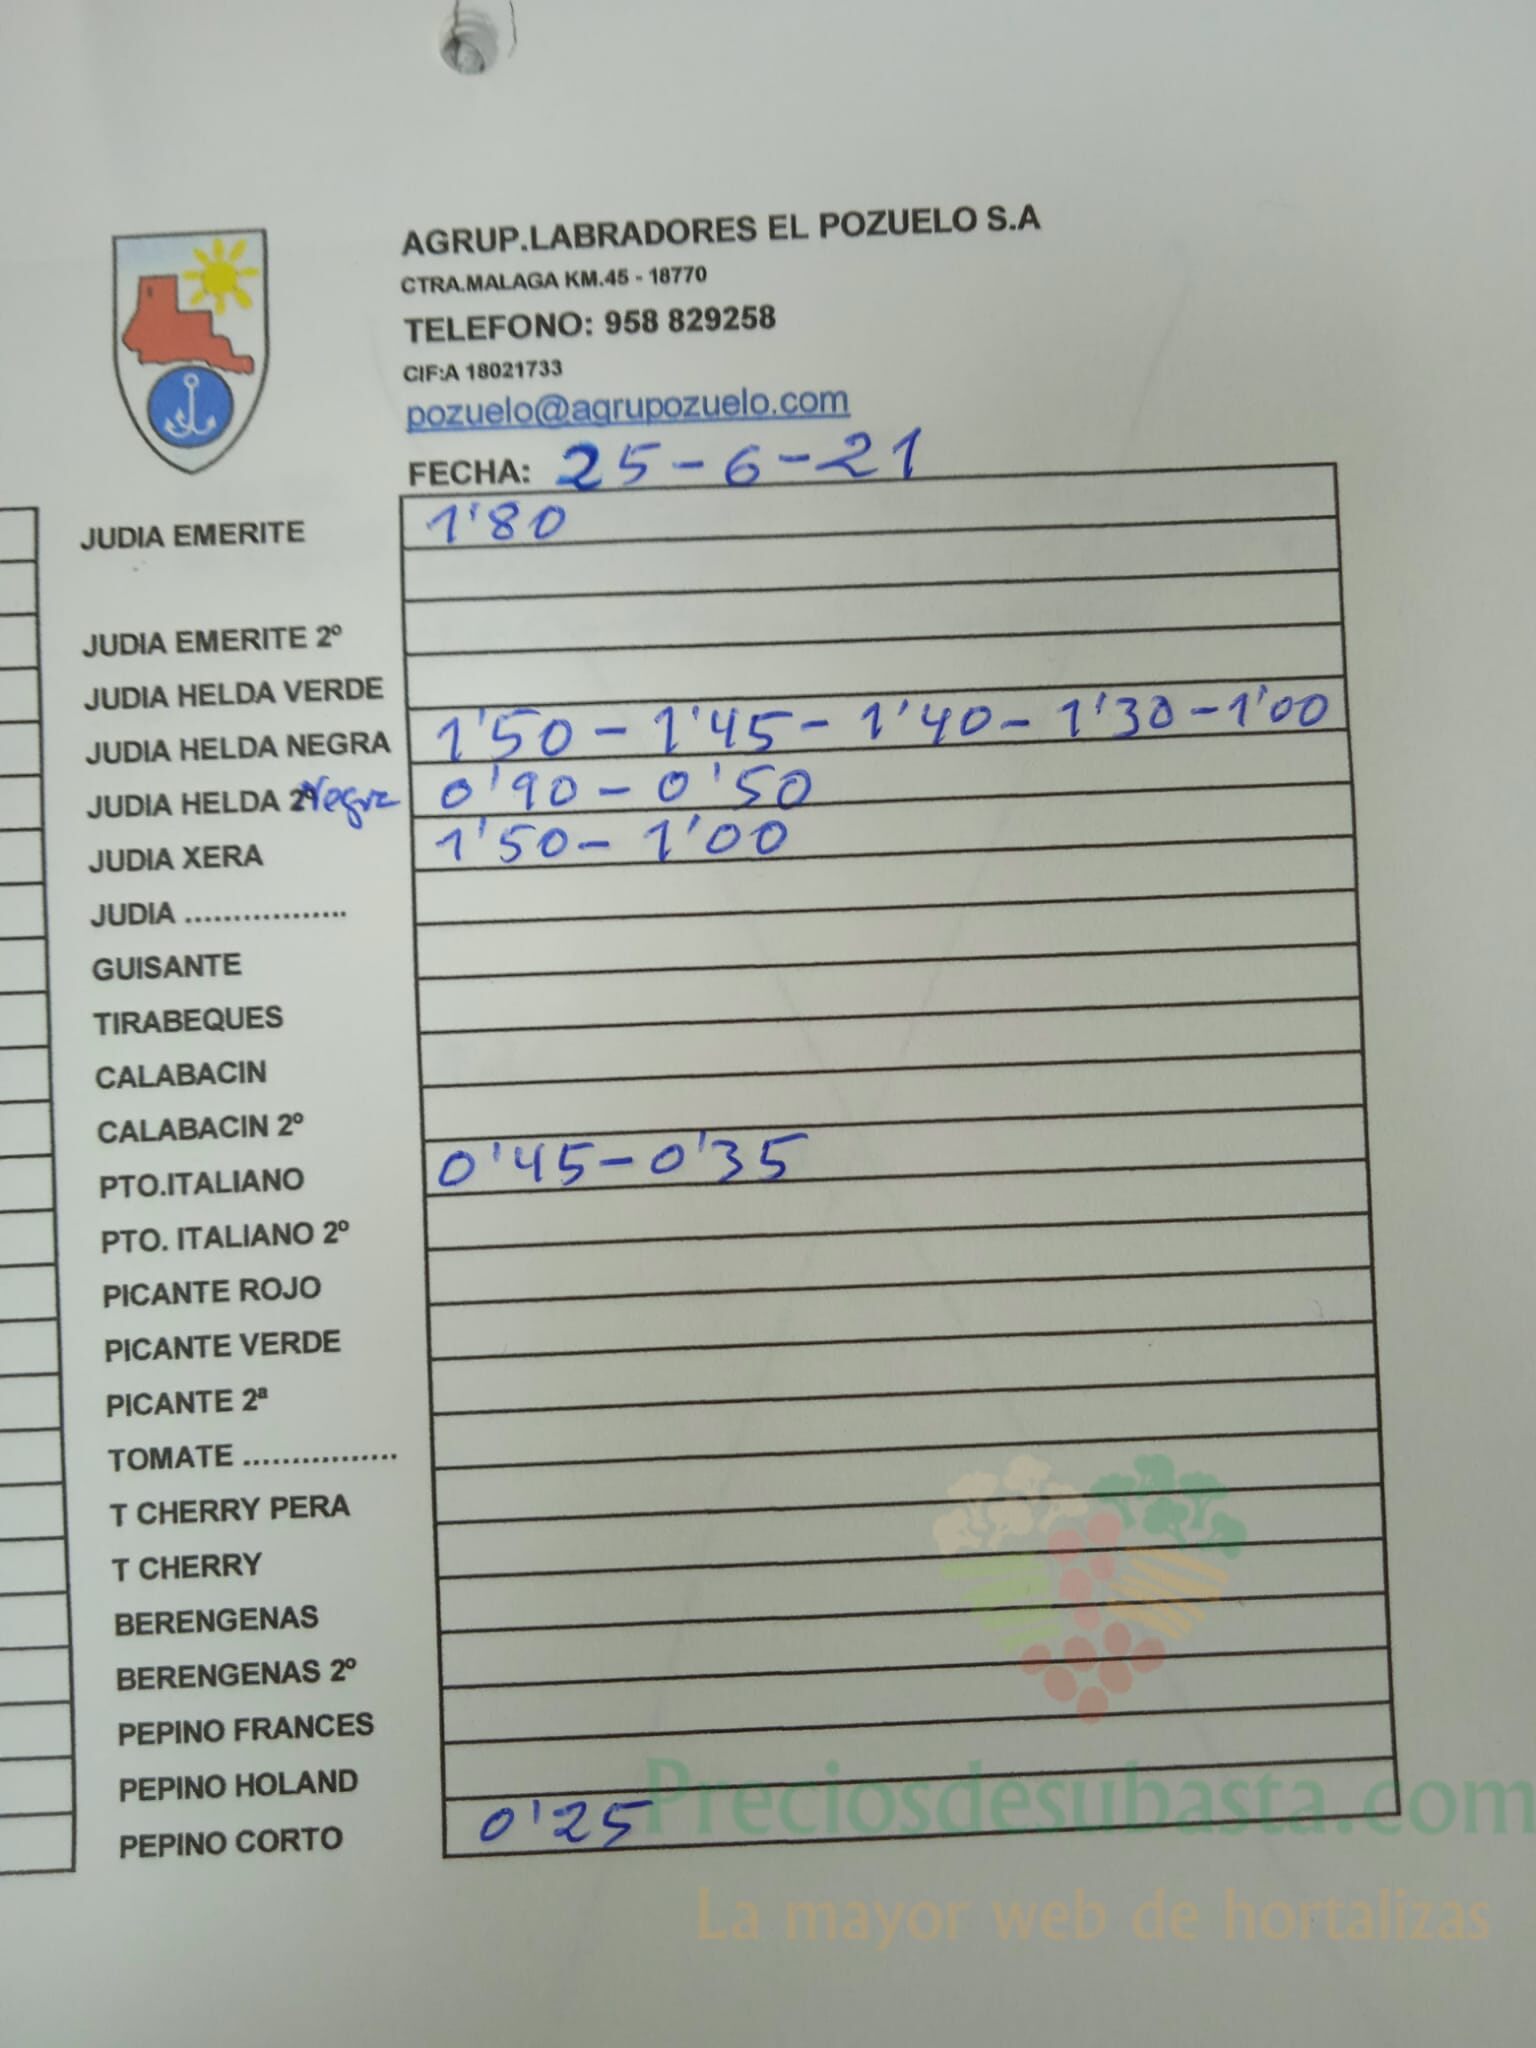 AGRUP.LABRADORES EL POZUELO S.A
CTRA.MALAGA KM.45 - 18770
TELEFONO: 958 829258
CIF:A 18021733
pozuelo@agrupozuelo.com
FECHA: 25-6-21
JUDIA EMERITE 1'80
JUDIA EMERITE 2º
JUDIA HELDA VERDE
JUDIA HELDA NEGRA 1'50 - 1'45 - 1'40 - 1'30 - 1'00
JUDIA HELDA 2º Negra 0'90 - 0'50
JUDIA XERA 1'50 - 1'00
JUDIA .................
GUISANTE
TIRABEQUES
CALABACIN
CALABACIN 2º
PTO.ITALIANO 0'45 - 0'35
PTO. ITALIANO 2º
PICANTE ROJO
PICANTE VERDE
PICANTE 2ª
TOMATE ................
T CHERRY PERA
T CHERRY
BERENGENAS
BERENGENAS 2º
PEPINO FRANCES
PEPINO HOLAND
PEPINO CORTO 0'25
Preciosdesubasta.com
La mayor web de hortalizas